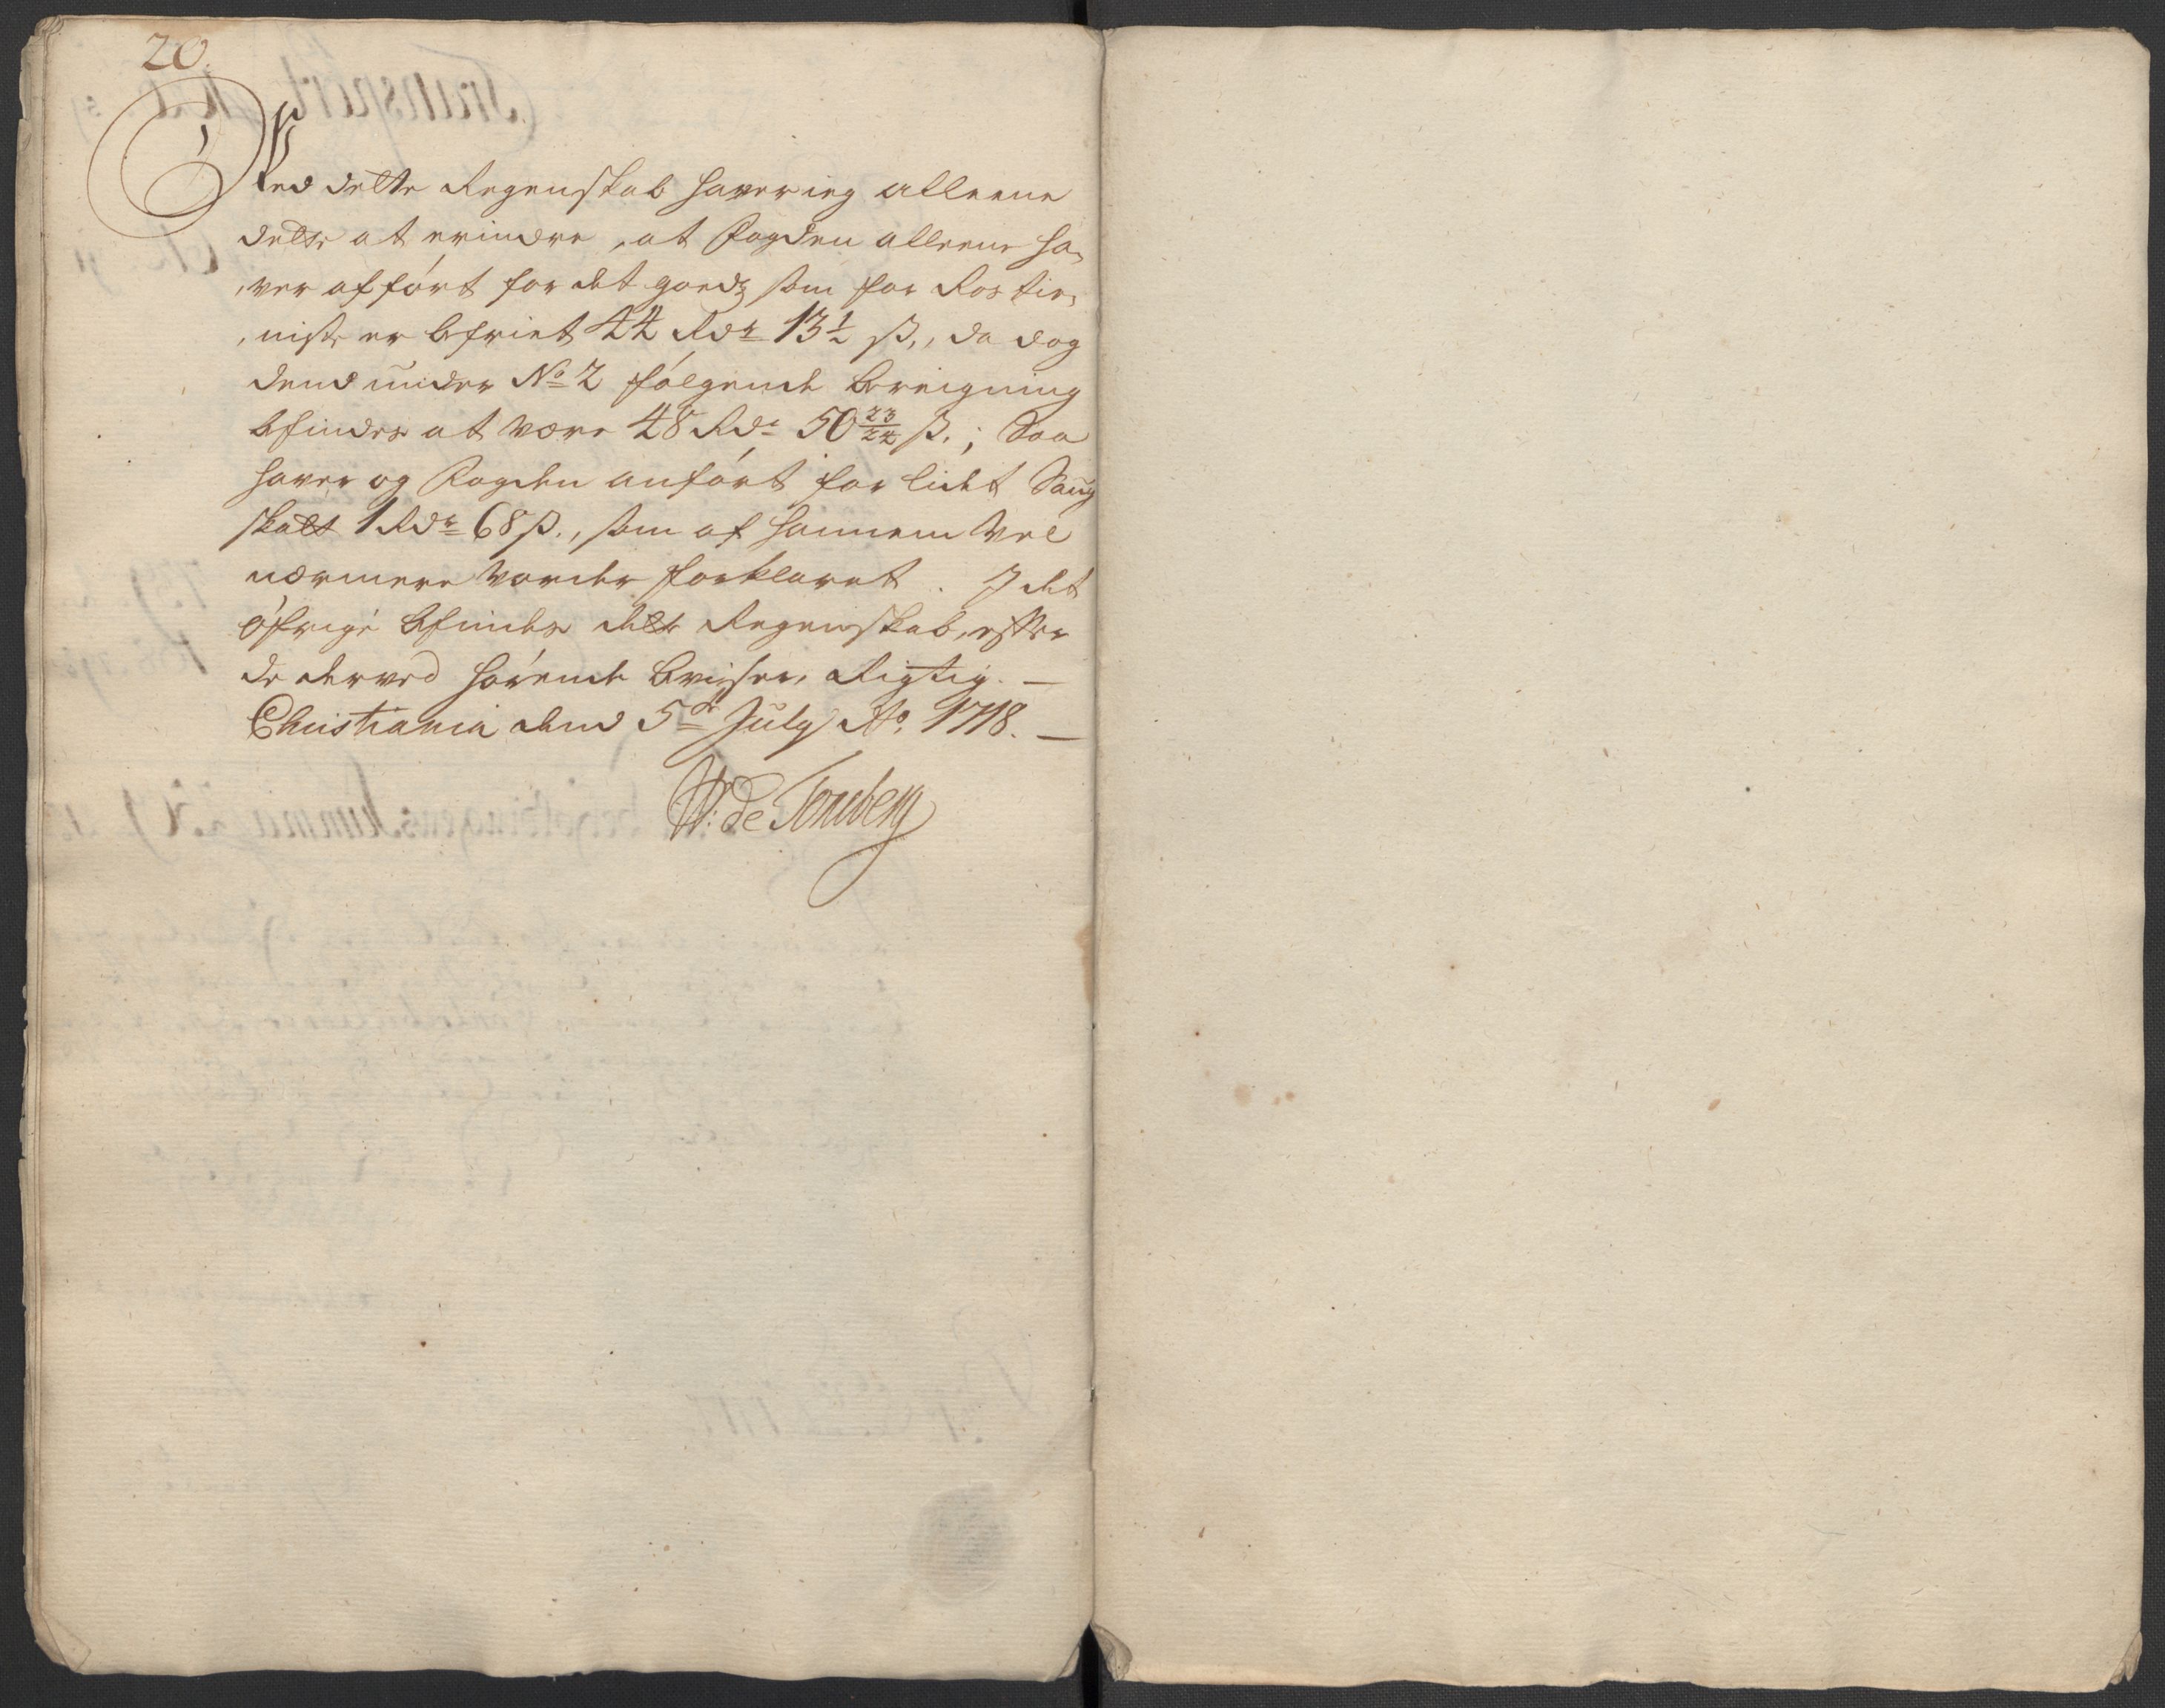 20.
Ved dette Regenskab haver ieg alleene
dette at erindre, at Fogden alleene ha,
,ver afført for det goedz som for Ros tie,
,niste er befriet 44 Rdr 13½ ß., da dog
dend under No 2 følgende Bereigning
befindes at være 48 Rdr 50 23/24 ß.; Saa
haver og Fogden anført for lidet Saug
skatt 1 Rdr 68 ß., som af hannem vel
nærmere vorder forklaret. I det
øfrige befindes dette Regenskab, efter
de derved hørende beviser, Rigtig. —
Christiania dend 5te July Ao. 1718. —
W: de Tonsberg